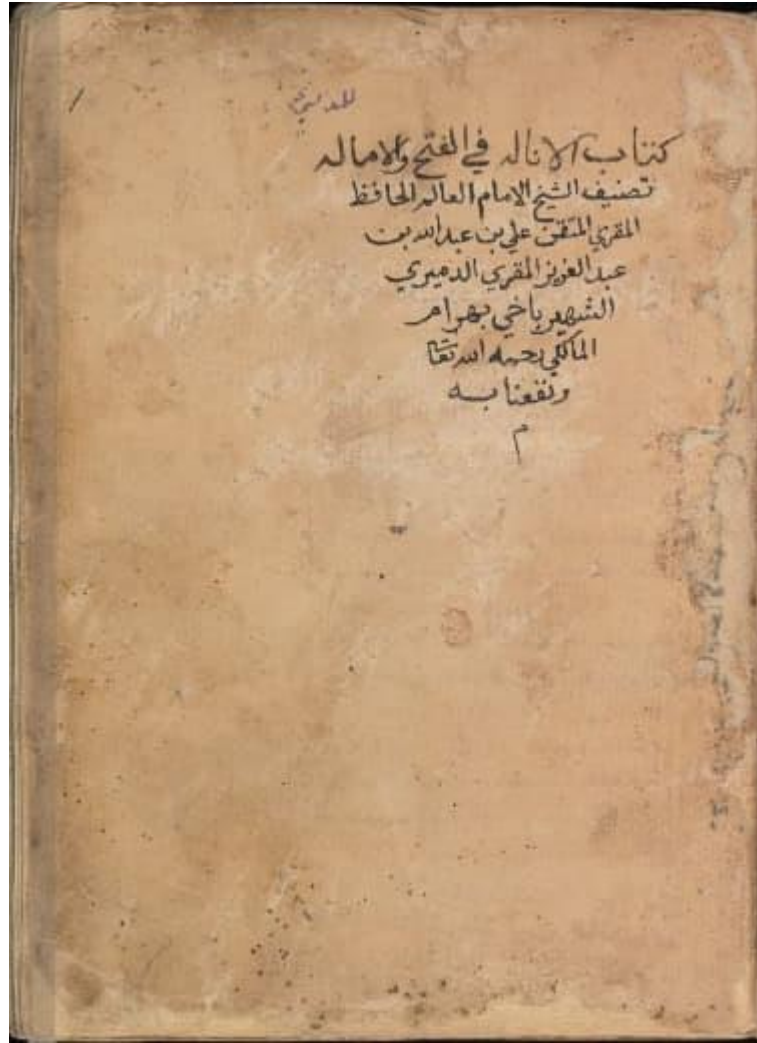 كتاب الاناله في الفتح والاماله
تصنيف الشيخ الامام العالم الحافظ
المقري المتقن علي بن عبد الله بن
عبد العزيز المقري الدميري
الشهير باخي بهرام
المالكي رحمه الله تعا
ونفعنا به
م